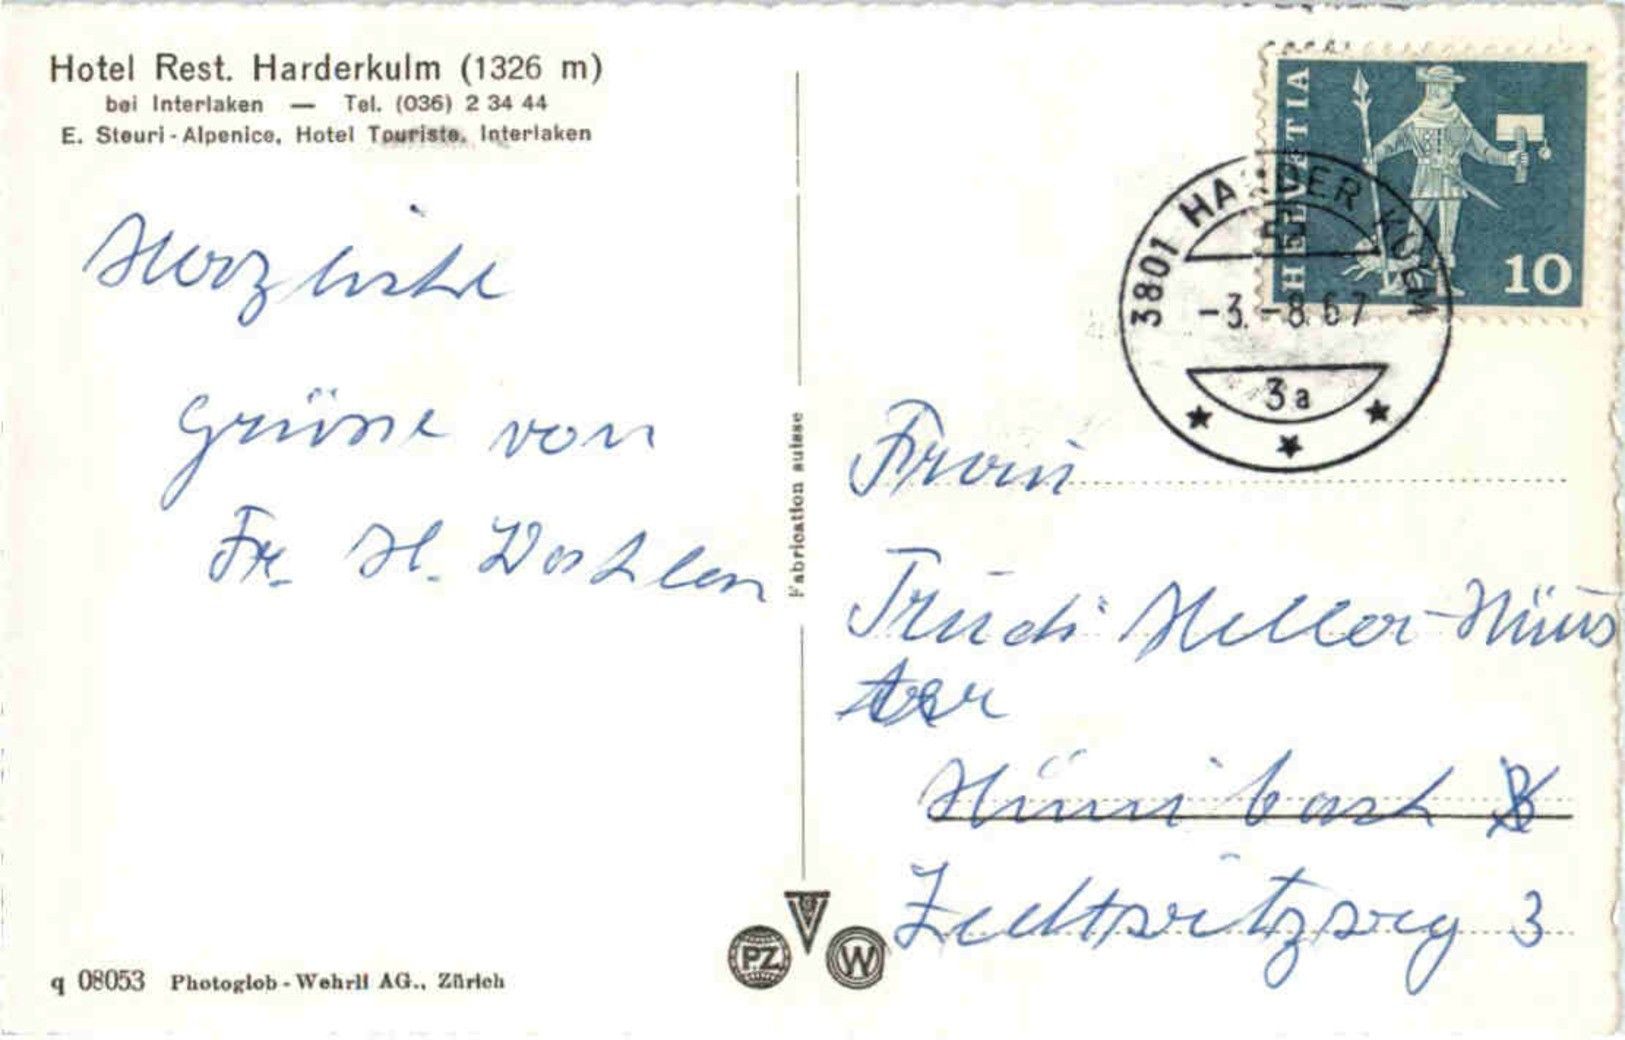 Hotel Rest. Harderkulm (1326 m)
bei Interlaken — Tel. (036) 2 34 44
E. Steuri-Alpenice, Hotel Touriste, Interlaken
Herzliche
Grüsse von
Fr. H.
Fabrication suisse
q 08053 Photoglob-Wehrli AG., Zürich
PZ
W
HELVETIA
10
3801 HARDER KULM
-3.-8.67
3a
Frau
Trudi Heller-Hüns
ter
Hünibach
3